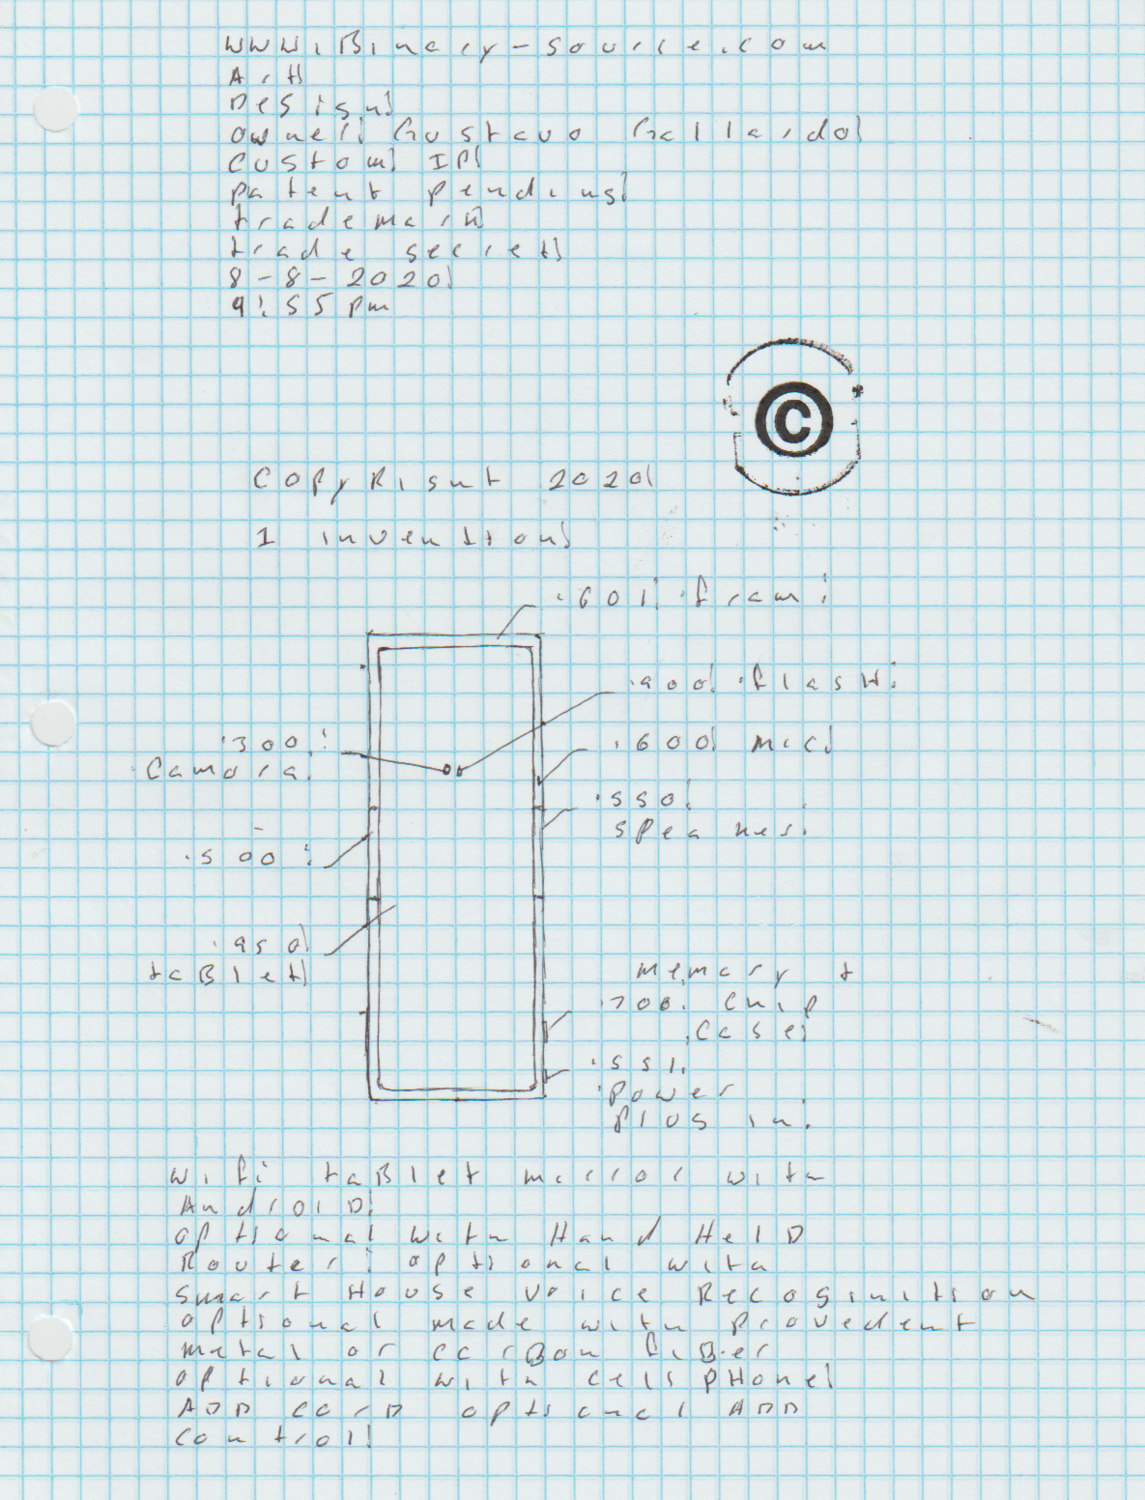 www.Binary-source.com
Art
Design
owner: Gustavo Gallardo
Custom IP
patent pending
trademark
trade secret
8-8-2020
9:55 pm
©
CopyRight 2020
1 invention
.601 frame
.900 flash
.300
Camera
.600 mic
.550
speakes
.500
.950
tablet
memory +
.700 chip
case
.551
power
plug in
wifi tablet mirror with
Android
optional with Hand Held
Router: optional with
smart House voice Recoginition
optional made with provedent
metal or carbon fiber
optional with cell pHone
ADD card optional ADD
control